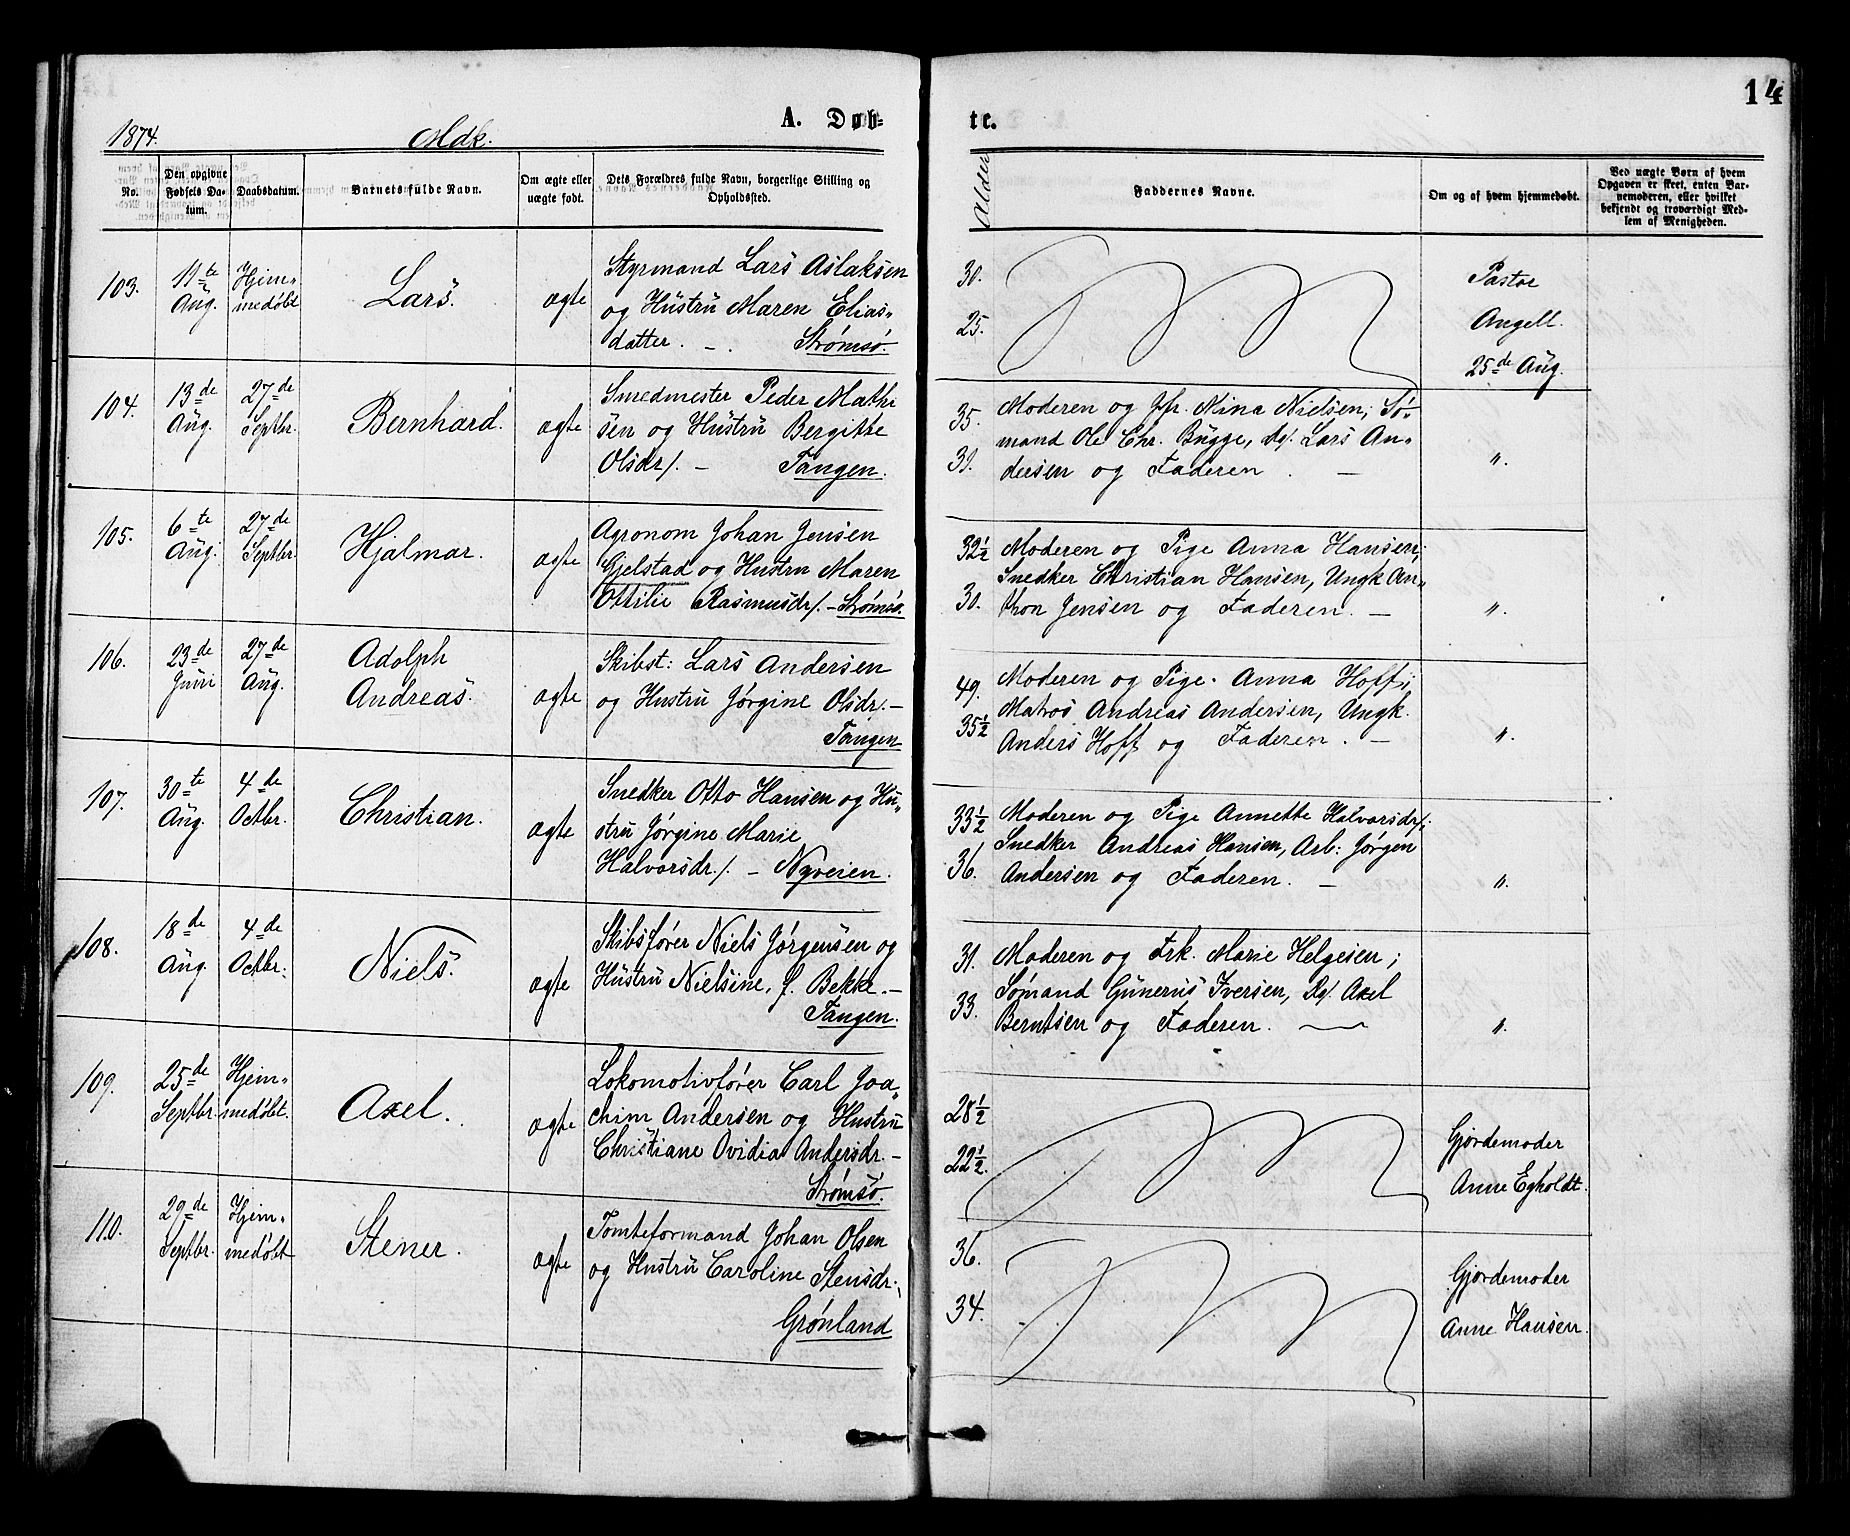 14
1874.
Mdk.
A. Døb-
te.
No.
Den opgivne
Fødsels Da-
tum.
Daabsdatum.
Barnets fulde Navn.
Om ægte eller
uægte født.
Dets Forældres fulde Navn, borgerlige Stilling og
Opholdssted.
Alder
Faddernes Navne.
Om og af hvem hjemmedøbt.
Ved uægte Børn af hvem
Opgaven er skeet, enten Bar-
nemoderen, eller hvilket
bekjendt og troværdigt Med-
lem af Menigheden.
103.
11te
Aug.
Hjem-
medøbt
Lars.
ægte
Styrmand Lars Aslaksen
og Hustru Maren Elias-
datter. - . Strømsø.
30.
25.
Pastor
Angell
25de Aug.
104.
13de
Aug.
27de
Septbr.
Bernhard.
ægte
Smedmester Peder Mathi
sen og Hustru Bergitte
Olsdr/. - Tangen.
35.
31.
Moderen og Jfr. Mina Nielsen; Sø-
mand Ole Chr. Bugge, Lars An-
dersen og Faderen . -
"
105.
6te
Aug.
27de
Septbr.
Hjalmar.
ægte
Agronom Johan Jensen
Gjelstad og Hustru Maren
Ottilie Rasmusdr/. - Strømsø.
32½
30.
Moderen og Pige Anna Hansen;
Snedker Christian Hansen, Ungk An-
thon Jensen og Faderen. -
"
106.
23de
Juni
27de
Aug.
Adolph
Andreas.
ægte
Skibst: Lars Andersen
og Hustru Jørgine Olsdr/. -
Tangen
49.
35½
Moderen og Pige Anna Hoff;
Matros Andreas Andersen, Ungk.
Anders Hoff og Faderen . -
"
107.
30te
Aug.
4de
Octbr.
Christian.
ægte
Snedker Otto Hansen og Hu-
stru Jørgine Marie
Halvorsdr/. - Nyveien.
33½
36.
Moderen og Pige Annette Halvorsdr/.;
Snedker Andreas Hansen, Arb: Jørgen
Andersen og Faderen. -
"
108.
18de
Aug.
4de
Octbr.
Niels.
ægte
Skibsfører Niels Jørgensen og
Hustru Nielsine, f. Bekke. -
Tangen.
31.
33.
Moderen og Frk. Marie Helgesen;
Sømand Gunerius Iversen, Axel
Berntsen og Faderen. -
"
109.
25de
Septbr.
Hjem-
medøbt.
Axel.
ægte
Lokomotivfører Carl Joa-
chim Andersen og Hustru
Christiane Ovidia Andersdr. -
Strømsø.
28½
22½.
Gjordemoder
Anne Egholdt.
110.
29de
Septbr.
Hjem-
medøbt
Stener.
ægte
Tomteformand Johan Olsen
og Hustru Caroline Stensdr.;
Grønland
36.
34.
Gjordemoder
Anne Hansen.